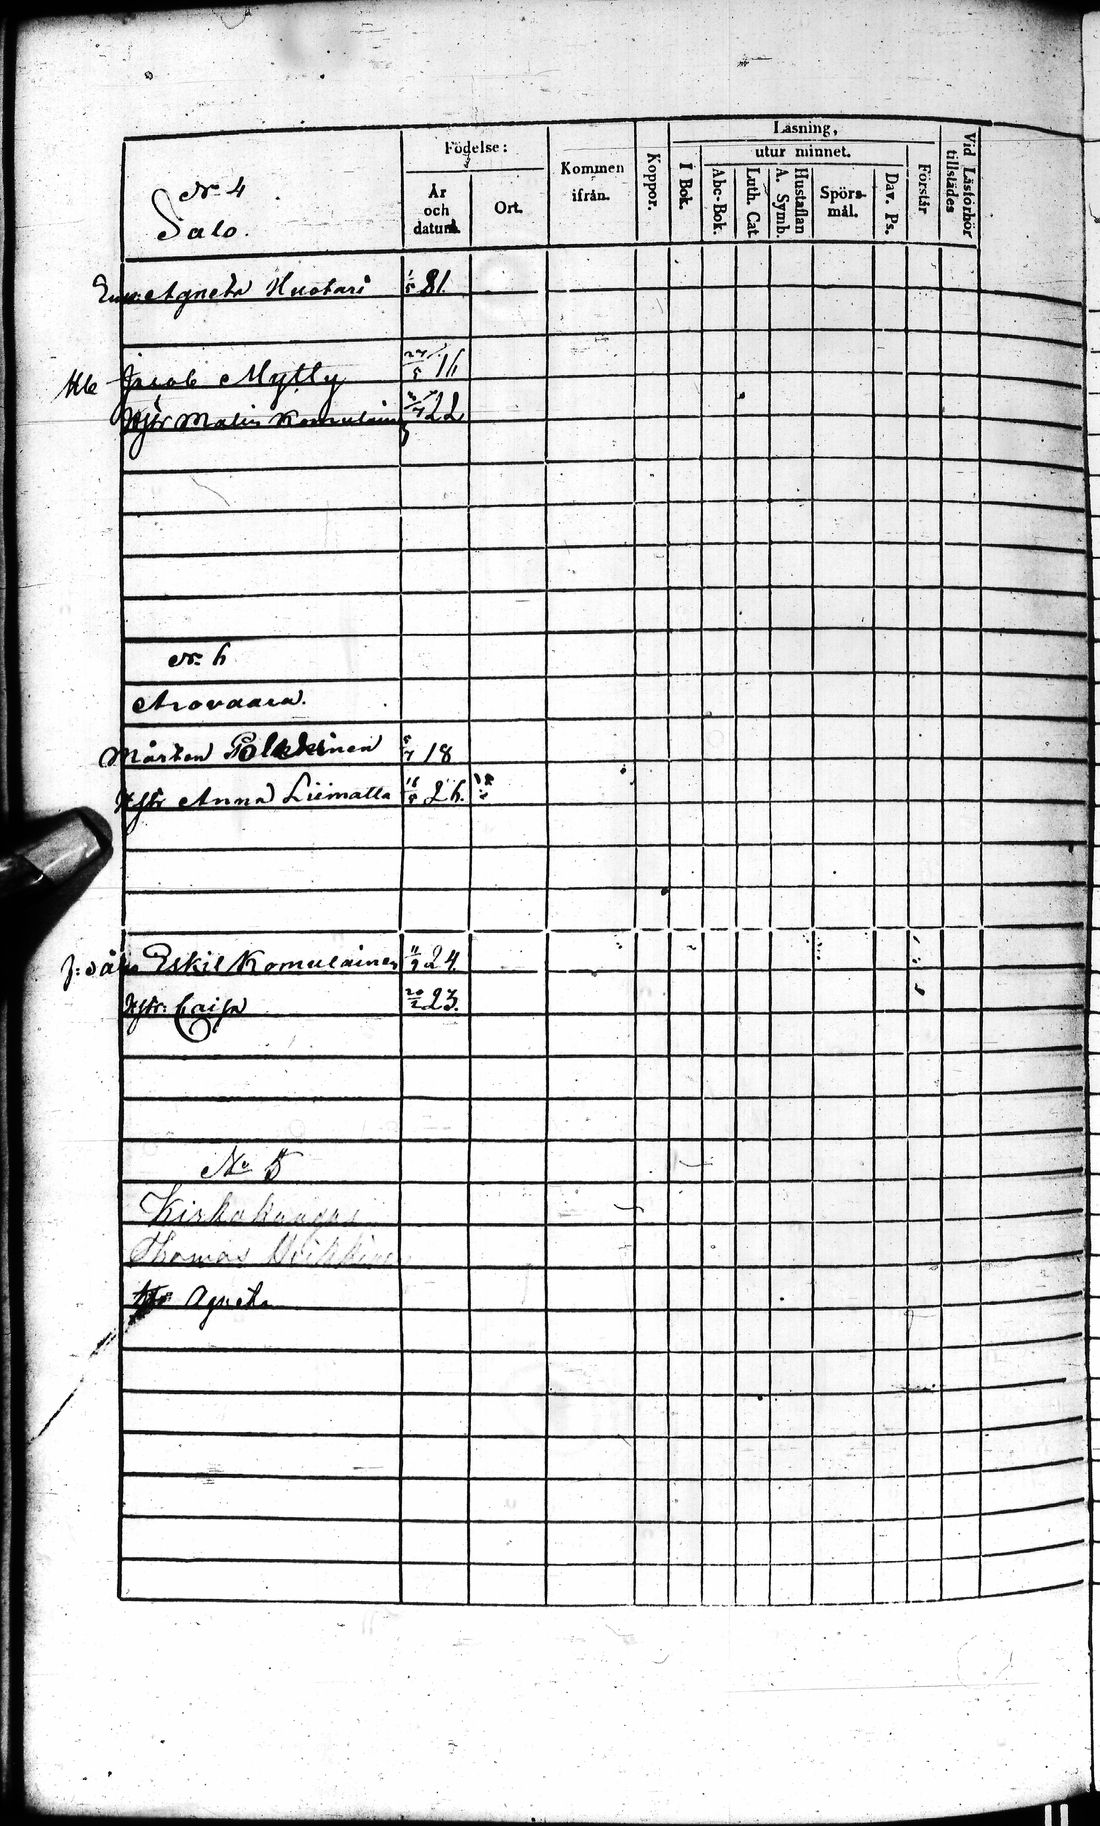 No 4
Salo.
Födelse:
År och datum.
Ort.
Kommen ifrån.
Koppor.
Läsning,
I Bok.
utur minnet.
Abc-Bok.
Luth. Cat.
Hustaflan A. Symb.
Spörsmål.
Dav. Ps.
Förstår
Vid Läsförhör tillstädes
Agneta Huotari 1/5 81.
Jacob Mylly 27/5 16
Hstr Malin Komulainen 22
No 6
Arovaara.
Mårten Pölkkinen 18
Hstr Anna Liimatta 26.
Eskil Komulainen 24.
Hstr: Caisa 20/2 23.
No 5
Kirkokangas
Thomas
Agneta